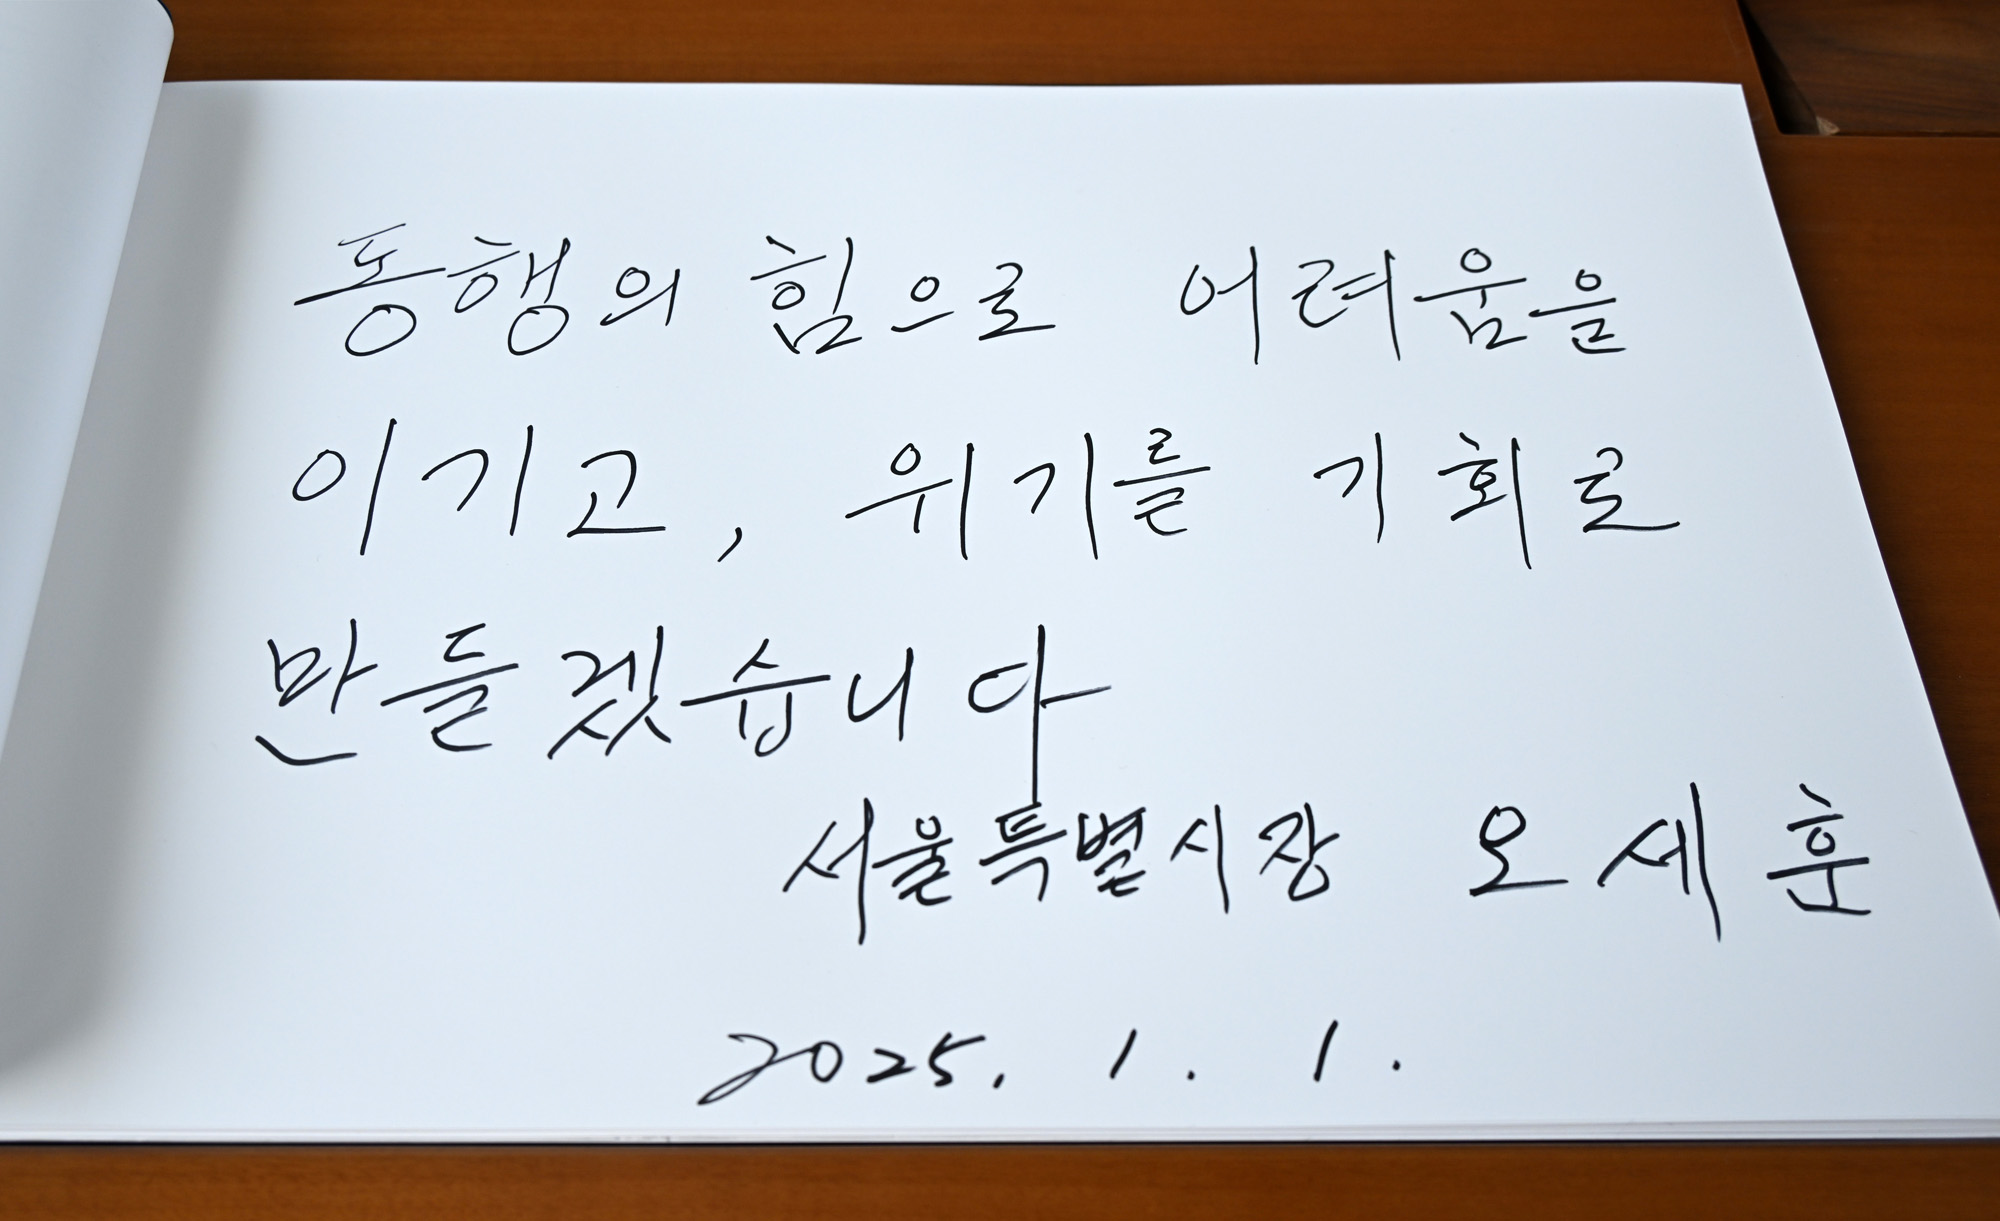 동행의 힘으로 어려움을
이기고, 위기를 기회로
만들겠습니다
서울특별시장 오세훈
2025. 1. 1.